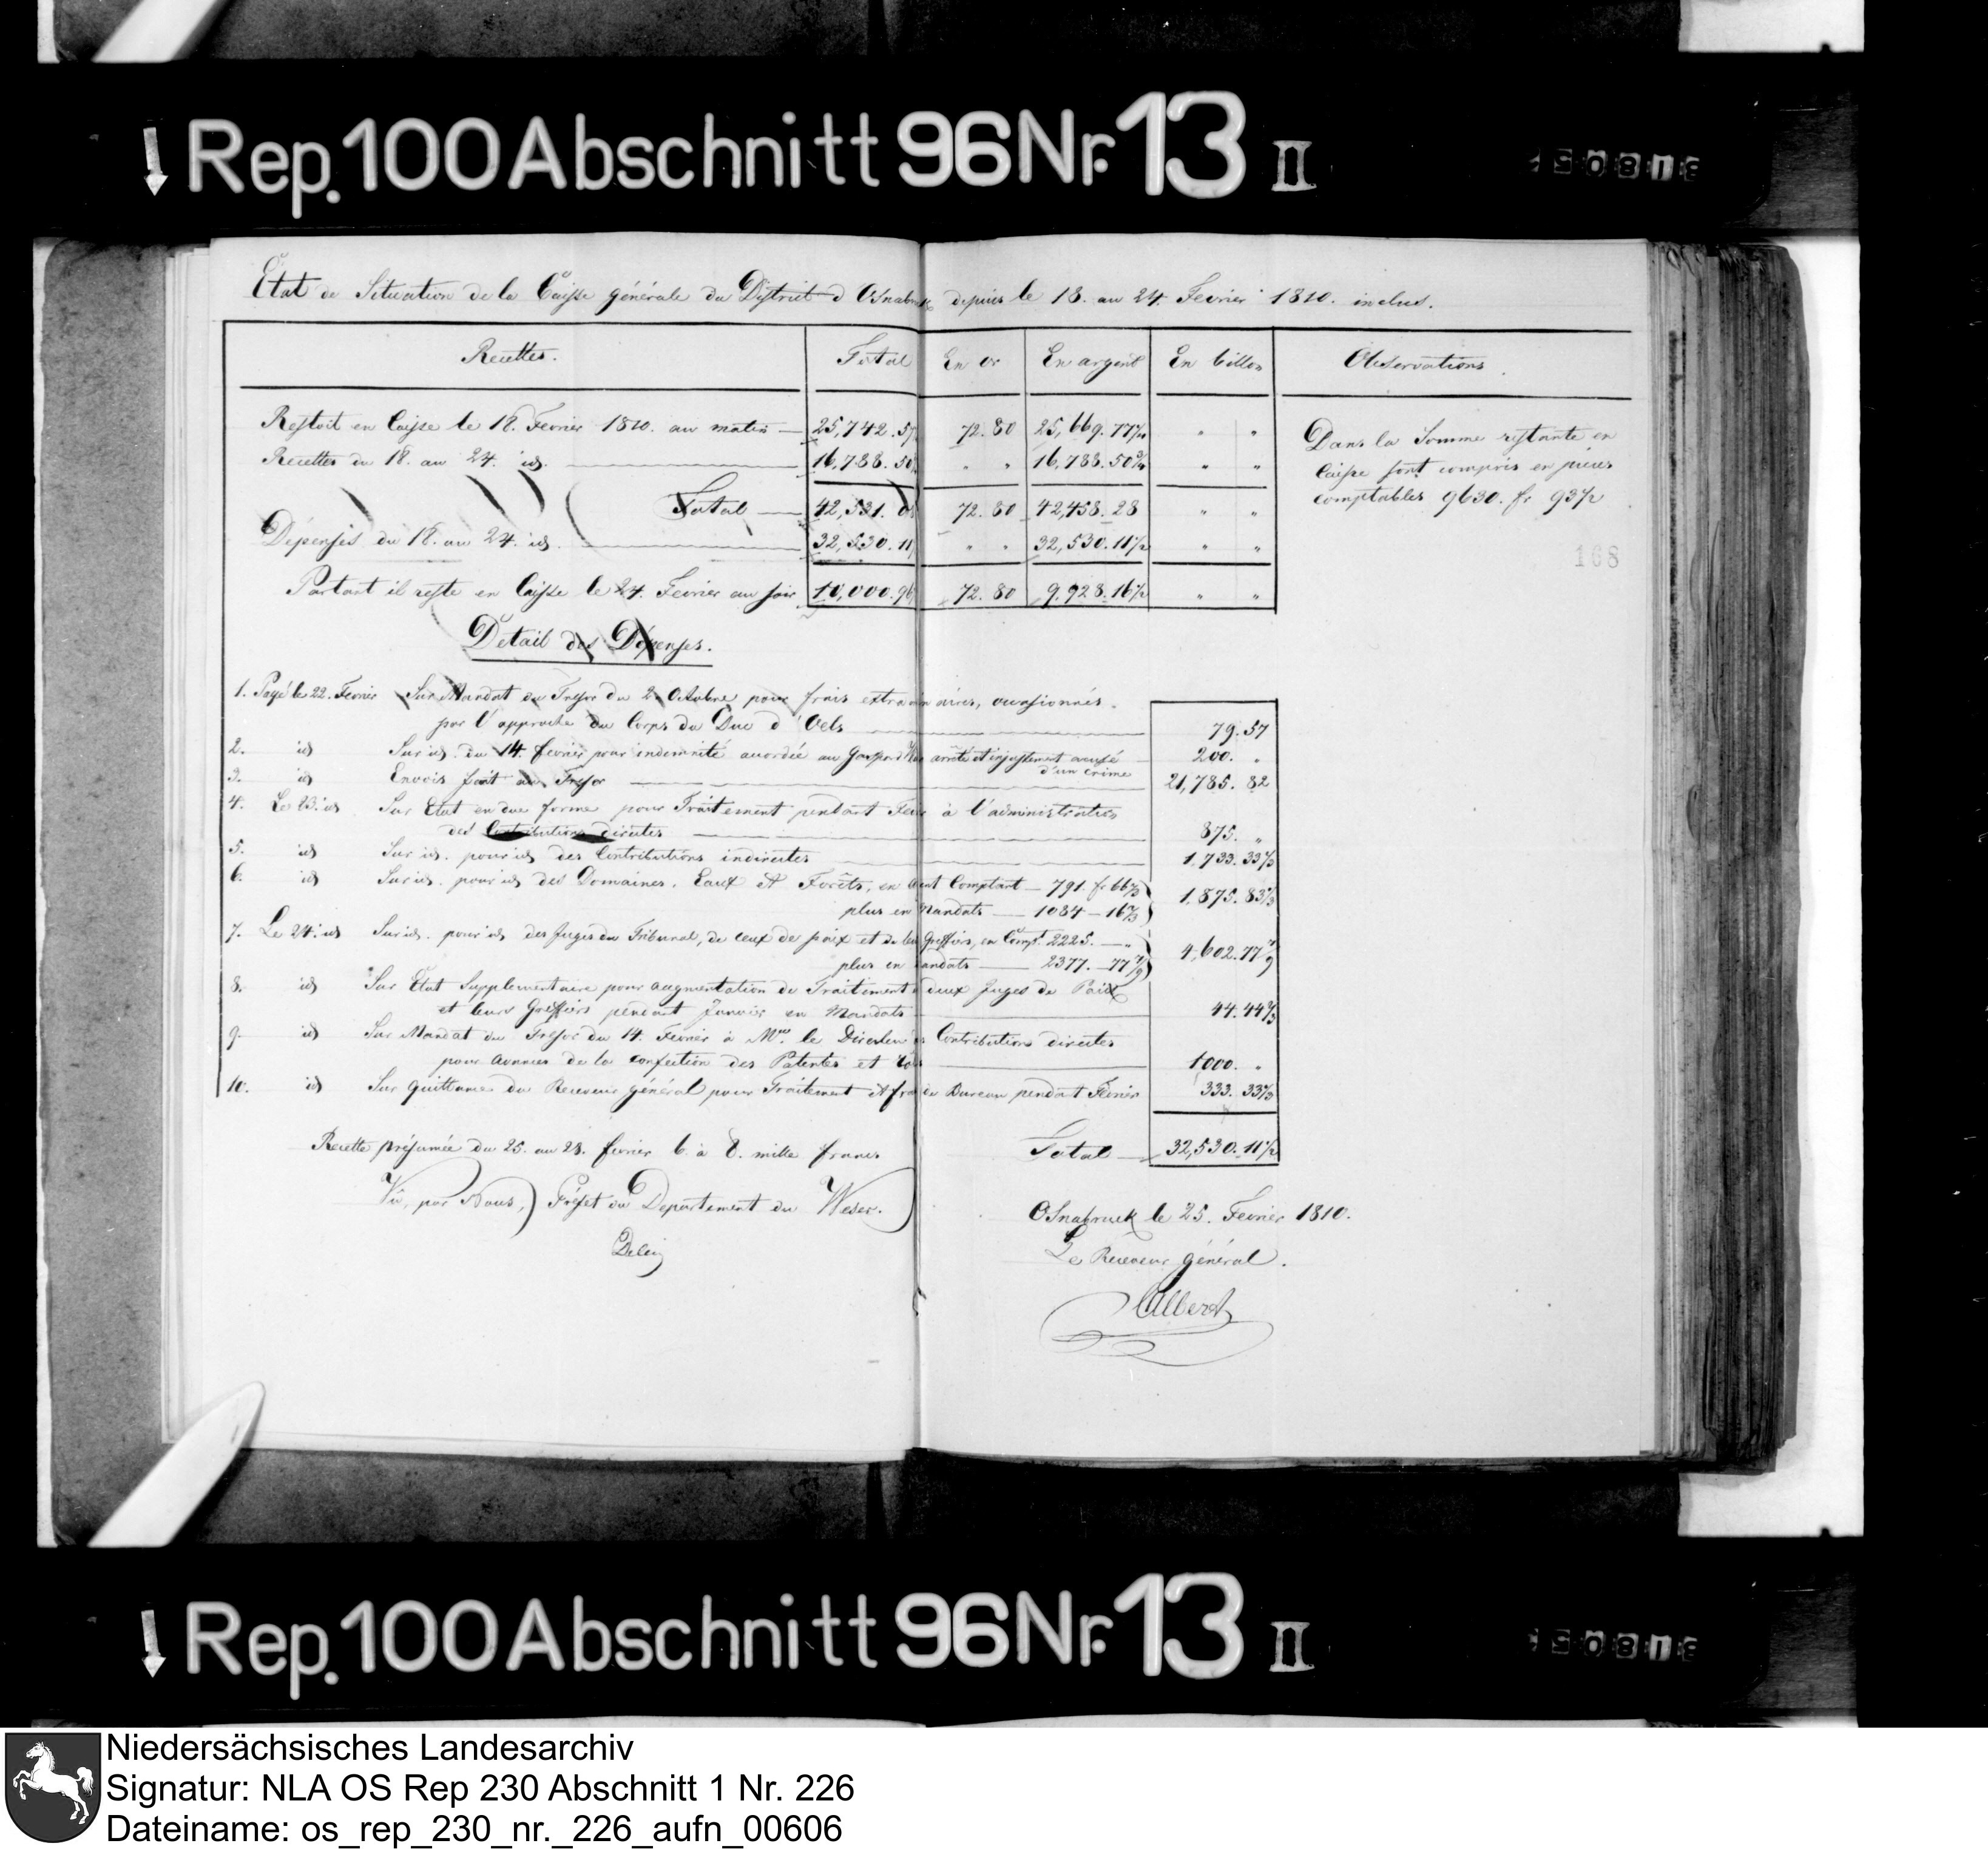 Rep. 100 Abschnitt 96 Nr. 13 II
Etat de Situation de la Caisse générale du District d'Osnabruck depuis le 18. au 24. Fevrier 1810. inclus.
Recettes. Total En or En argent En billon Observations.
Restoit en Caisse le 18. Fevrier 1810. au matin — 25,742.57 72.80 25,669.77 " "
Recettes du 18. au 24. id. — 16,788.50 " " 16,788.50 " "
Total — 42,531. 08 72.80 42,458.28 " "
Dépenses du 18. au 24. id. — 32,530.11 " " 32,530.11½ " "
Partant il reste en Caisse le 24. Fevrier au soir 10,000.96 72.80 9,928.16½ " "
Dans la Somme restante en
Caisse sont compris en pieces
comptables 9630. fr 93½
168
Detail des Dépenses.
1. Payé le 22. Fevrier Sur Mandat du Tresor du 2 Octobre pour frais extraordinaires, occasionnés
par l'approche du Corps du Duc d'Oels — 79.57
2. id Sur id. du 14. fevrier pour indemnité accordée au arrêté et injustement accusé
d'un crime 200. "
3. id Envois fait au Tresor — 21,785. 82
4. Le 23. id Sur Etat en due forme pour Traitement pendant Fevr à l'administration
des Contributions directes — 875. "
5. id Sur id. pour id des Contributions indirectes — 1,733.33⅓
6. id Sur id. pour id des Domaines, Eaux et Forêts, en Comptant — 791. fr 66⅔
plus en Mandats — 1084 — 16⅔ 1,875.83⅓
7. Le 24. id Sur id. pour id des Juges du Tribunal, de ceux de paix et de leurs Greffiers, en Compt. 2225. — "
plus en Mandats — 2377. — 77 7/9 4,602.77 7/9
8. id Sur Etat Supplementaire pour augmentation de Traitement à deux Juges de Paix
et leurs Greffiers pendant Janvier en Mandats 44.44
9. id Sur Mandat du Tresor du 14. Fevrier à Mr. le Directeur des Contributions directes
pour avances de la confection des Patentes et 1000. "
10. id Sur Quittance du Receveur général pour Traitement et frais de Bureau pendant Fevrier 333.33⅓
Total — 32,530.11½
Recette présumée du 25. au 28. fevrier 6 à 8. mille francs
Vû, par Nous, Préfet du Departement du Weser.
Osnabruck le 25. Fevrier 1810.
Le Receveur général.
Albert
Rep. 100 Abschnitt 96 Nr. 13 II
Niedersächsisches Landesarchiv
Signatur: NLA OS Rep 230 Abschnitt 1 Nr. 226
Dateiname: os_rep_230_nr._226_aufn_00606